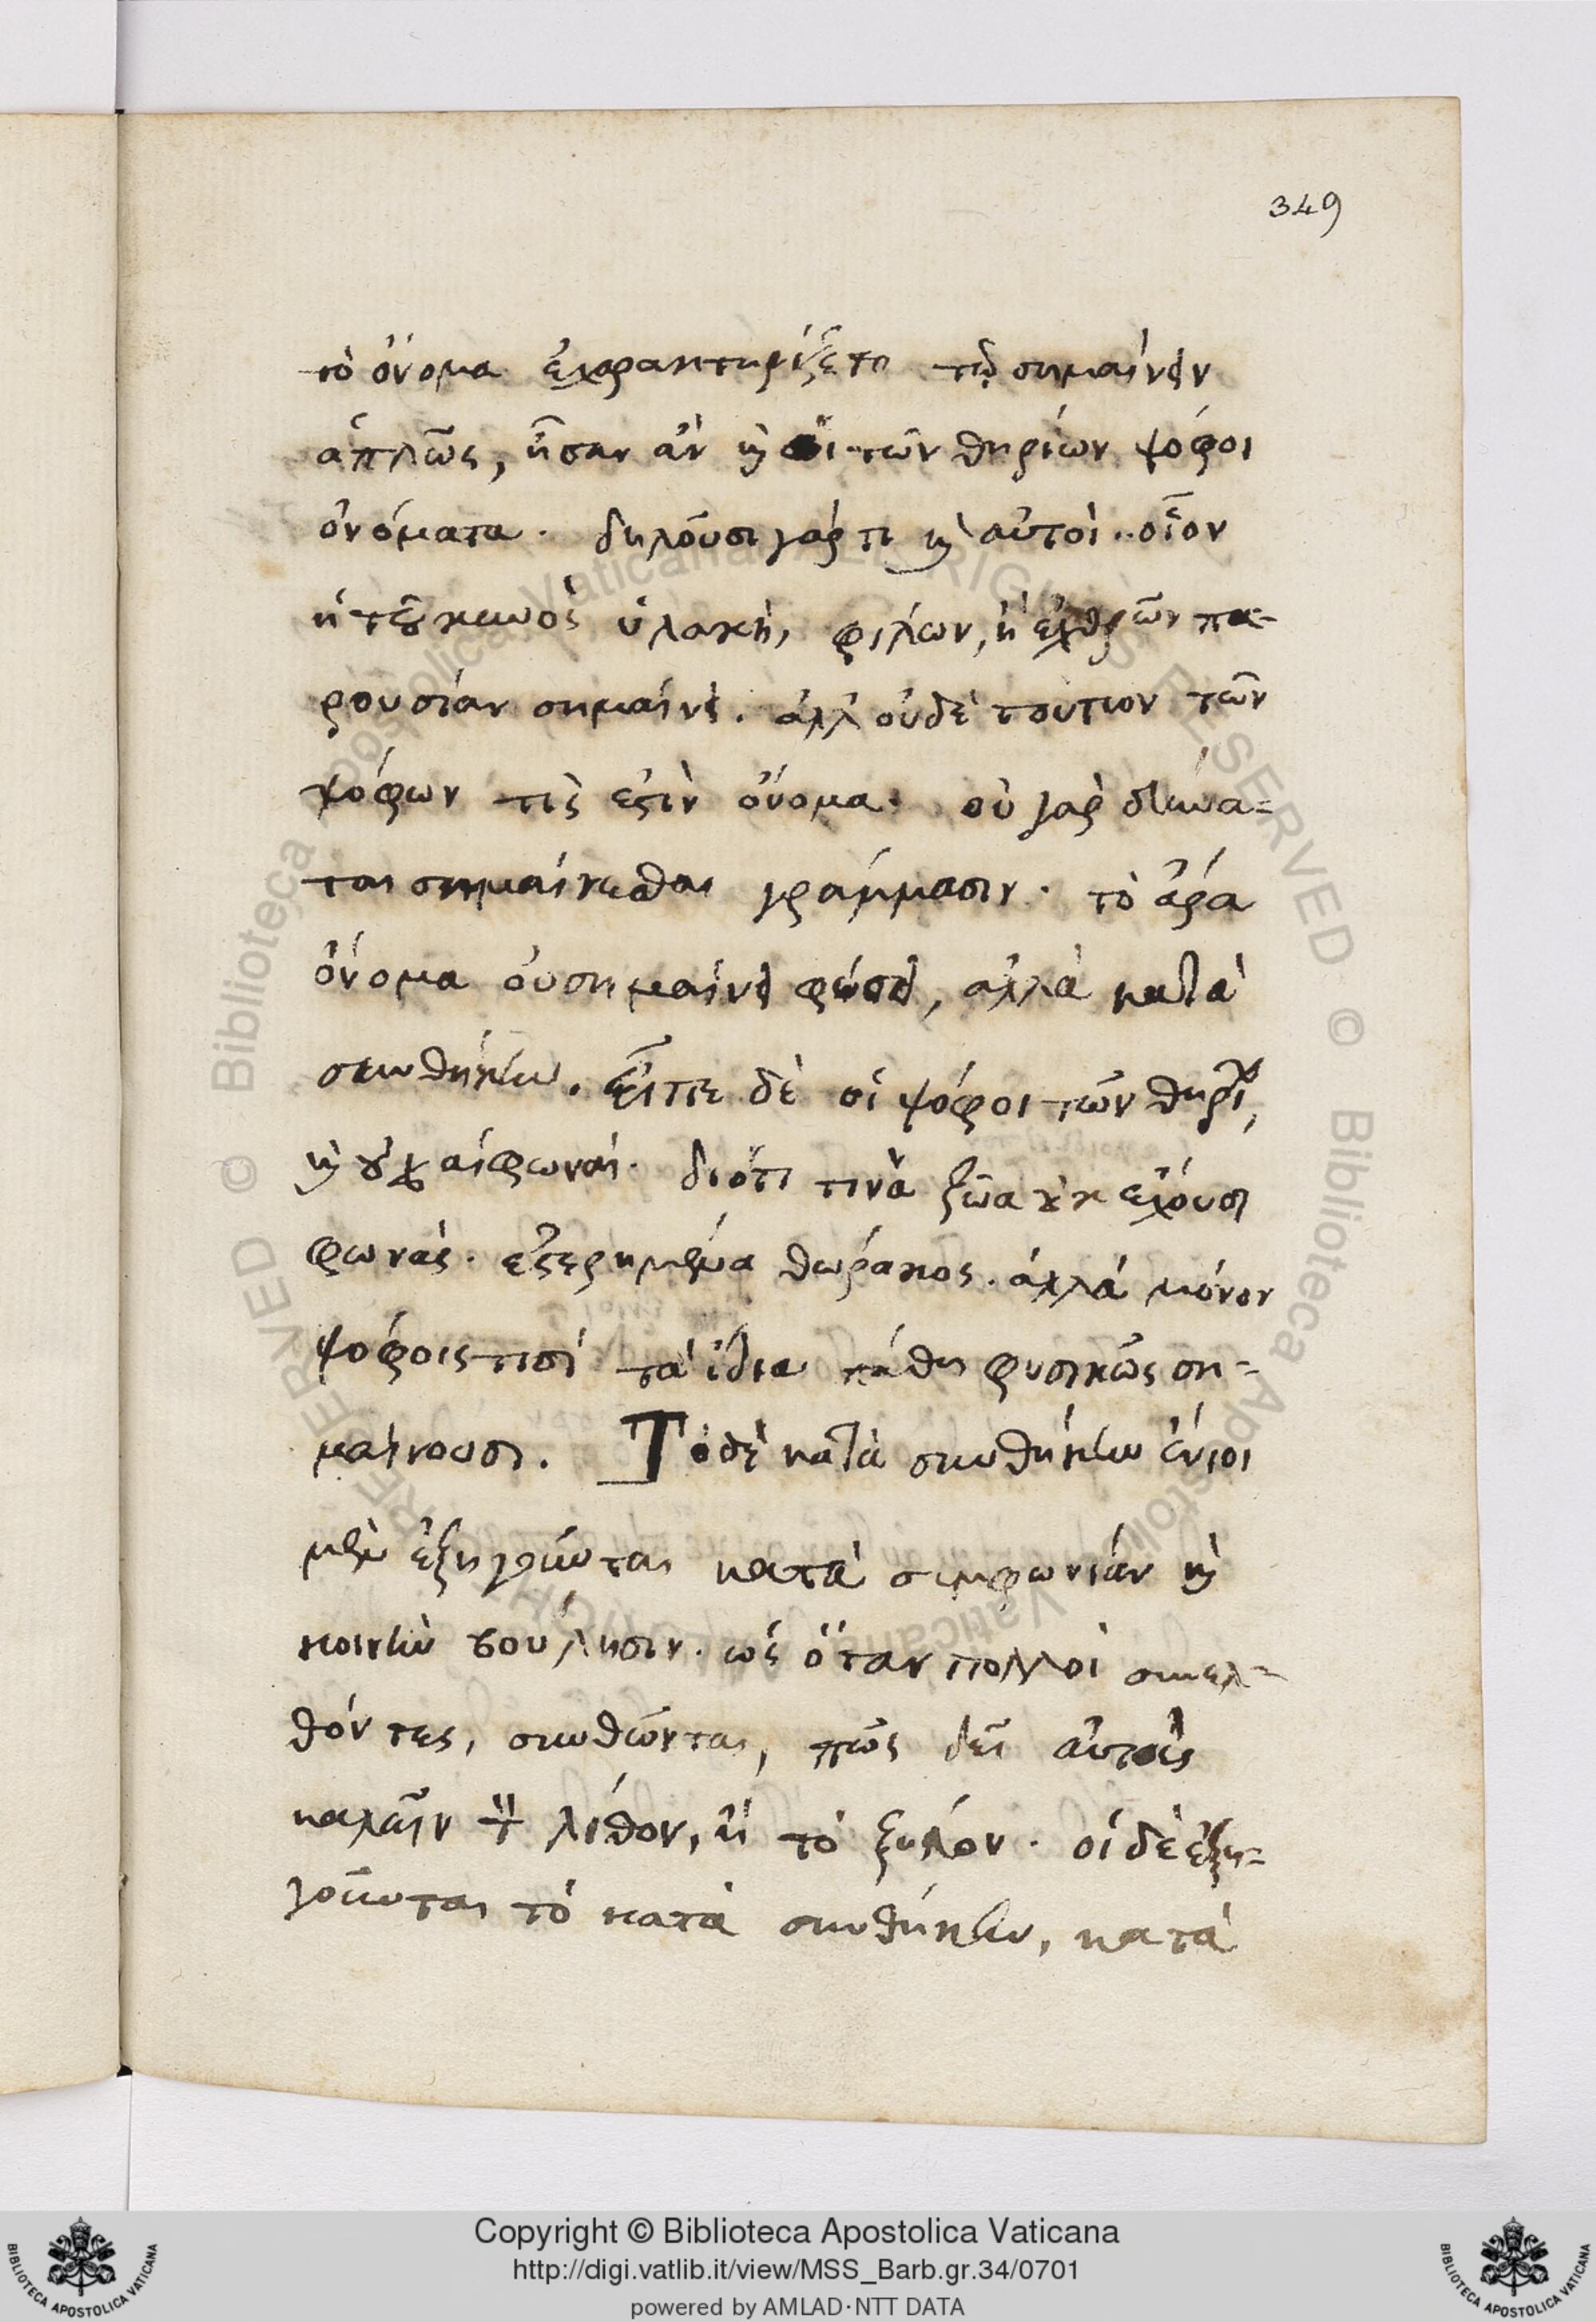 349
τὸ ὄνομα ἐχαρακτηρίζετο τῷ σημαίνειν
ἁπλῶς, ἦσαν ἂν καὶ οἱ τῶν θηρίων ψόφοι
ὀνόματα. δηλοῦσι γάρ τι καὶ αὐτοί. οἷον
ἡ τοῦ κυνὸς ὑλακὴ, φίλων, ἢ ἐχθρῶν πα-
ρουσίαν σημαίνει. ἀλλ' οὐδὲ τούτων τῶν
ψόφων τὶς ἐστὶν ὄνομα. οὐ γὰρ δύνα-
ται σημαίνεσθαι γράμμασιν. τὸ ἄρα
ὄνομα οὐ σημαίνει φύσει, ἀλλὰ κατὰ
συνθήκην. εἶπε δὲ οἱ ψόφοι τῶν θηρίων,
καὶ οὐχ αἱ φωναί. διότι τινὰ ζῶα οὐκ ἔχουσι
φωνάς. ἐστερημένα θώρακος. ἀλλὰ μόνον
ψόφοις τισὶ τὰ ἴδια πάθη φυσικῶς ση-
μαίνουσι. Τὸ δὲ κατὰ συνθήκην ἔνιοι
μὲν ἐξηγοῦνται κατὰ συμφωνίαν καὶ
κοινὴν βούλησιν. ὡς ὅταν πολλοὶ συνελ-
θόντες, συνθῶνται, πῶς δεῖ αὐτοῖς
καλεῖν τὸν λίθον, ἢ τὸ ξύλον. οἱ δὲ ἐξη-
γοῦνται τὸ κατὰ συνθήκην, κατὰ
Copyright © Biblioteca Apostolica Vaticana
http://digi.vatlib.it/view/MSS_Barb.gr.34/0701
powered by AMLAD·NTT DATA